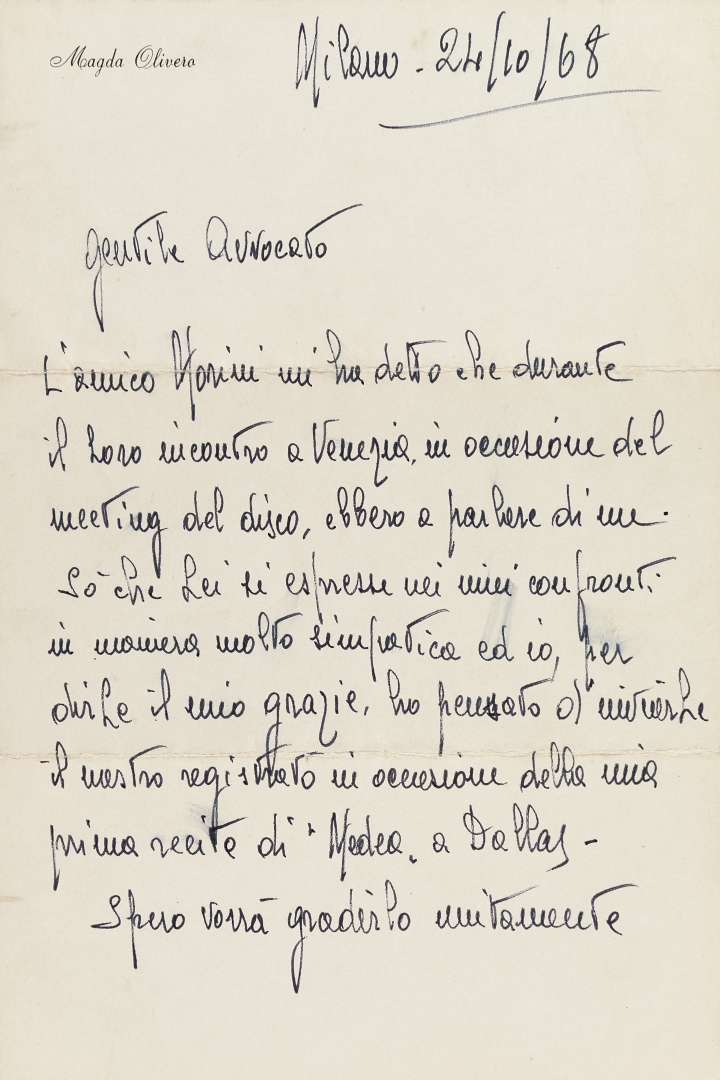 Magda Olivero
Milano - 24/10/68
gentile Avvocato
L'amico Morini mi ha detto che durante
il Loro incontro a Venezia, in occasione del
meeting del disco, ebbero a parlare di me.
Sò che Lei si espresse nei miei confronti
in maniera molto simpatica ed io, per
dirLe il mio grazie, ho pensato d'inviarLe
il nastro registrato in occasione della mia
prima recita di "Medea" a Dallas -
Spero vorrà gradirlo unitamente